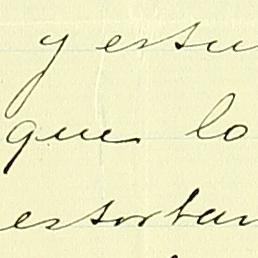 y estu
que lo
estortan